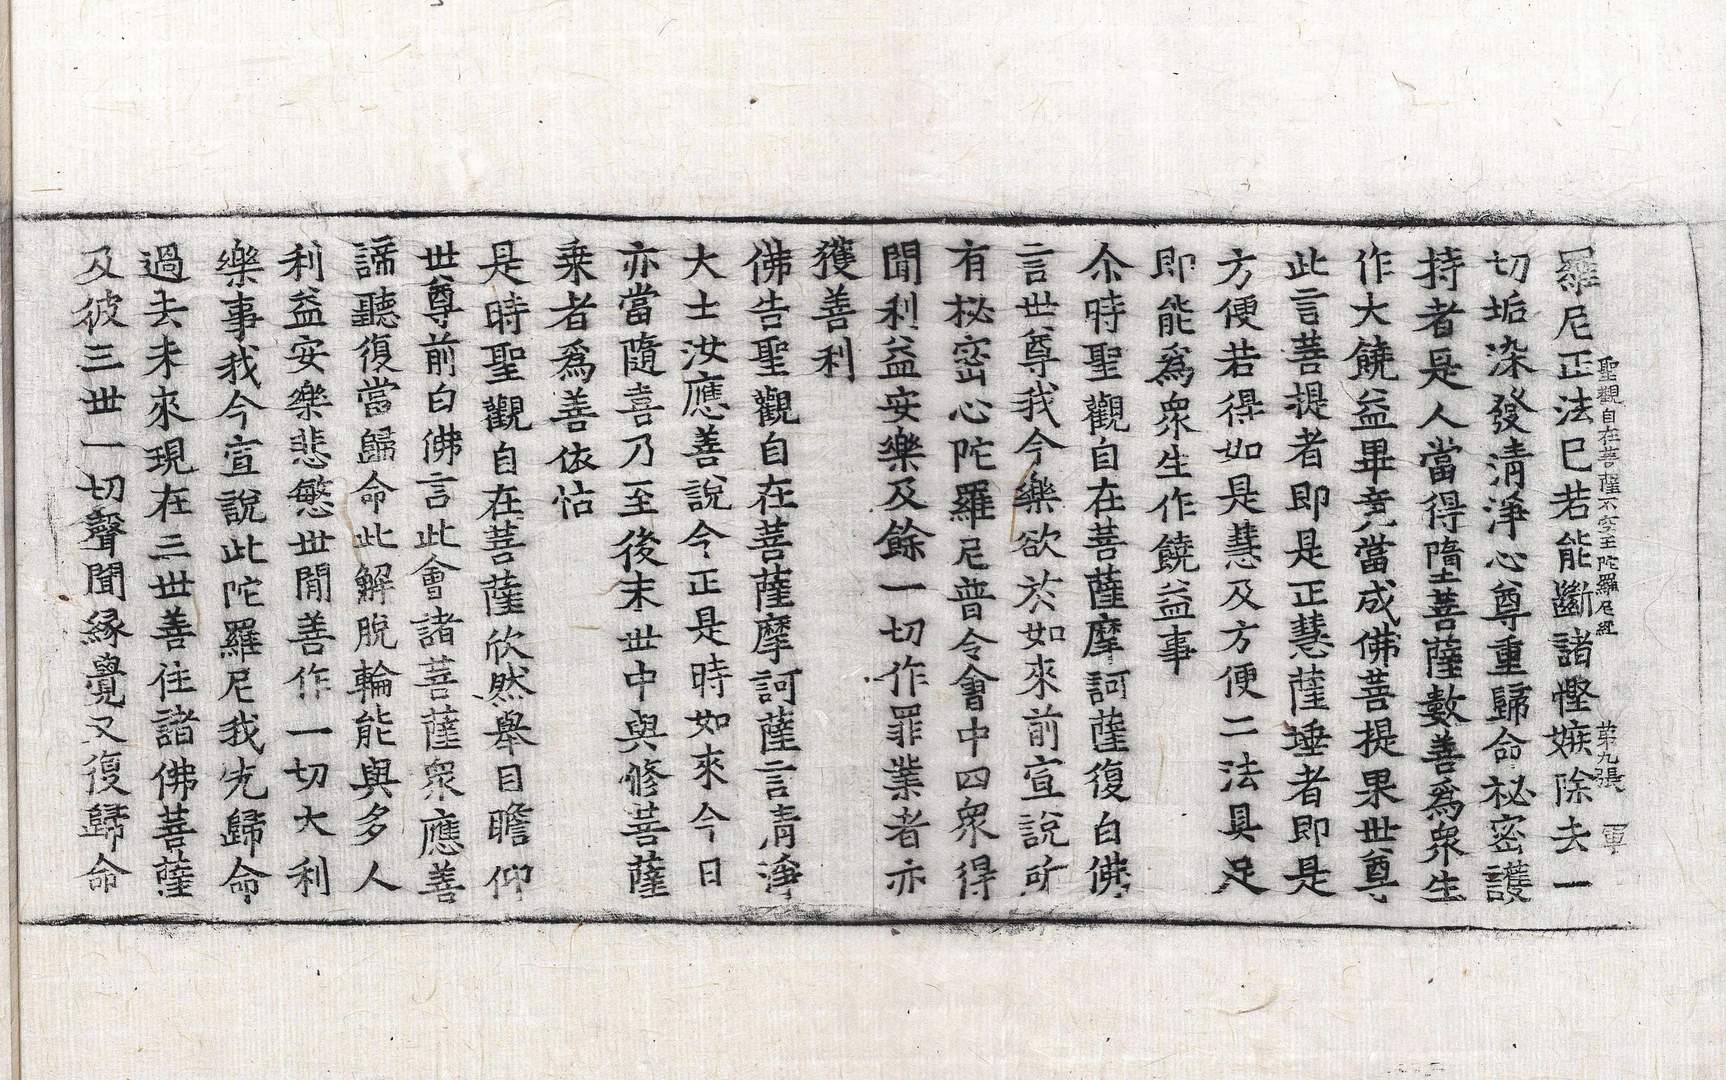 羅尼正法已若能斷諸慳嫉除去一
聖觀自在菩薩不空王陀羅尼經 第九張 軍
切垢染發清淨心尊重歸命祕密護
持者是人當得墮菩薩數善爲衆生
作大饒益畢竟當成佛菩提果世尊
此言菩提者即是正慧薩埵者即是
方便若得如是慧及方便二法具足
即能爲衆生作饒益事
尒時聖觀自在菩薩摩訶薩復白佛
言世尊我今樂欲於如來前宣說所
有祕密心陀羅尼普令會中四衆得
聞利益安樂及餘一切作罪業者亦
獲善利
佛告聖觀自在菩薩摩訶薩言清淨
大士汝應善說今正是時如來今日
亦當隨喜乃至後末世中與修菩薩
乘者爲善依怙
是時聖觀自在菩薩欣然舉目瞻仰
世尊前白佛言此會諸菩薩衆應善
諦聽復當歸命此解脫輪能與多人
利益安樂悲愍世間善作一切大利
樂事我今宣說此陀羅尼我先歸命
過去未來現在三世善住諸佛菩薩
及彼三世一切聲聞緣覺又復歸命